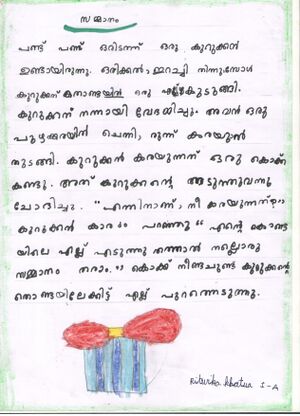 സമ്മാനം
പണ്ട് പണ്ട് ഒരിടത്ത് ഒരു കുറുക്കൻ
ഉണ്ടായിരുന്നു. ഒരിക്കൽ, ഇറച്ചി നിന്നുമ്പോൾ
കുറുക്കന് ഒരു എല്ല് കുടുങ്ങി.
കുറുക്കന് നന്നായി വേദനിച്ചു. അവൻ ഒരു
ചെന്നി, രുന്ന് കരയുവാൻ
തുടങ്ങി. കുറുക്കൻ കരയുന്നത് ഒരു കൊക്ക്
കണ്ടു. അത് കുറുക്കന്റെ അടുത്തുവന്നു
ചോദിച്ചു. "എന്നിനാണ്, നീ കരയുന്നത്?"
കുറുക്കൻ കാരണം പറഞ്ഞു "എന്റെ തൊണ്ട
യിലെ എല്ല് എടുത്തു തന്നാൽ നല്ലൊരു
സമ്മാനം തരാം." കൊക്ക് നീണ്ടചുണ്ട് കുറുക്കന്റെ
തൊണ്ടയിലേക്കിട്ട് എല്ല് പുറത്തെടുത്തു.
Ritwika Khatua I-A